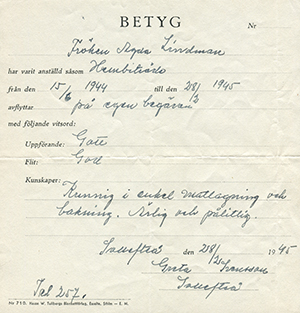 BETYG
Nr
Fröken Agda Lindman
har varit anställd såsom Hembiträde
från den 15/6 1944 till den 28/2 1945
avflyttar på egen begäran
med följande vitsord:
Uppförande: Gott
Flit: God
Kunskaper:
Kunnig i enkel matlagning och
bakning. Ärlig och pålitlig.
Sollefteå den 28/2 1945
Greta Svensson
Sollefteå
Tel 257.